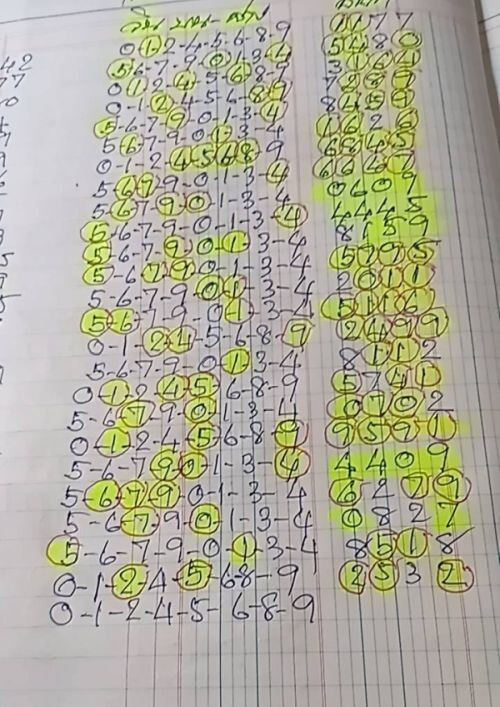 0-1-2-4-5-6-8-9 1177
5-6-7-9-0-1-3-4 5480
0-1-2-4-5-6-8-9 3164
0-1-2-4-5-6-8-9 7289
5-6-7-9-0-1-3-4 8459
5-6-7-9-0-1-3-4 1626
0-1-2-4-5-6-8-9 6845
5-6-7-9-0-1-3-4 6667
5-6-7-9-0-1-3-4 0609
5-6-7-9-0-1-3-4 4445
5-6-7-9-0-1-3-4 8159
5-6-7-9-0-1-3-4 5795
5-6-7-9-0-1-3-4 2011
5-6-7-9-0-1-3-4 5116
0-1-2-4-5-6-8-9 2499
5-6-7-9-0-1-3-4 8112
0-1-2-4-5-6-8-9 5741
5-6-7-9-0-1-3-4 0702
0-1-2-4-5-6-8-9 9591
5-6-7-9-0-1-3-4 4409
5-6-7-9-0-1-3-4 6279
5-6-7-9-0-1-3-4 0827
5-6-7-9-0-1-3-4 8518
0-1-2-4-5-6-8-9 2532
0-1-2-4-5-6-8-9